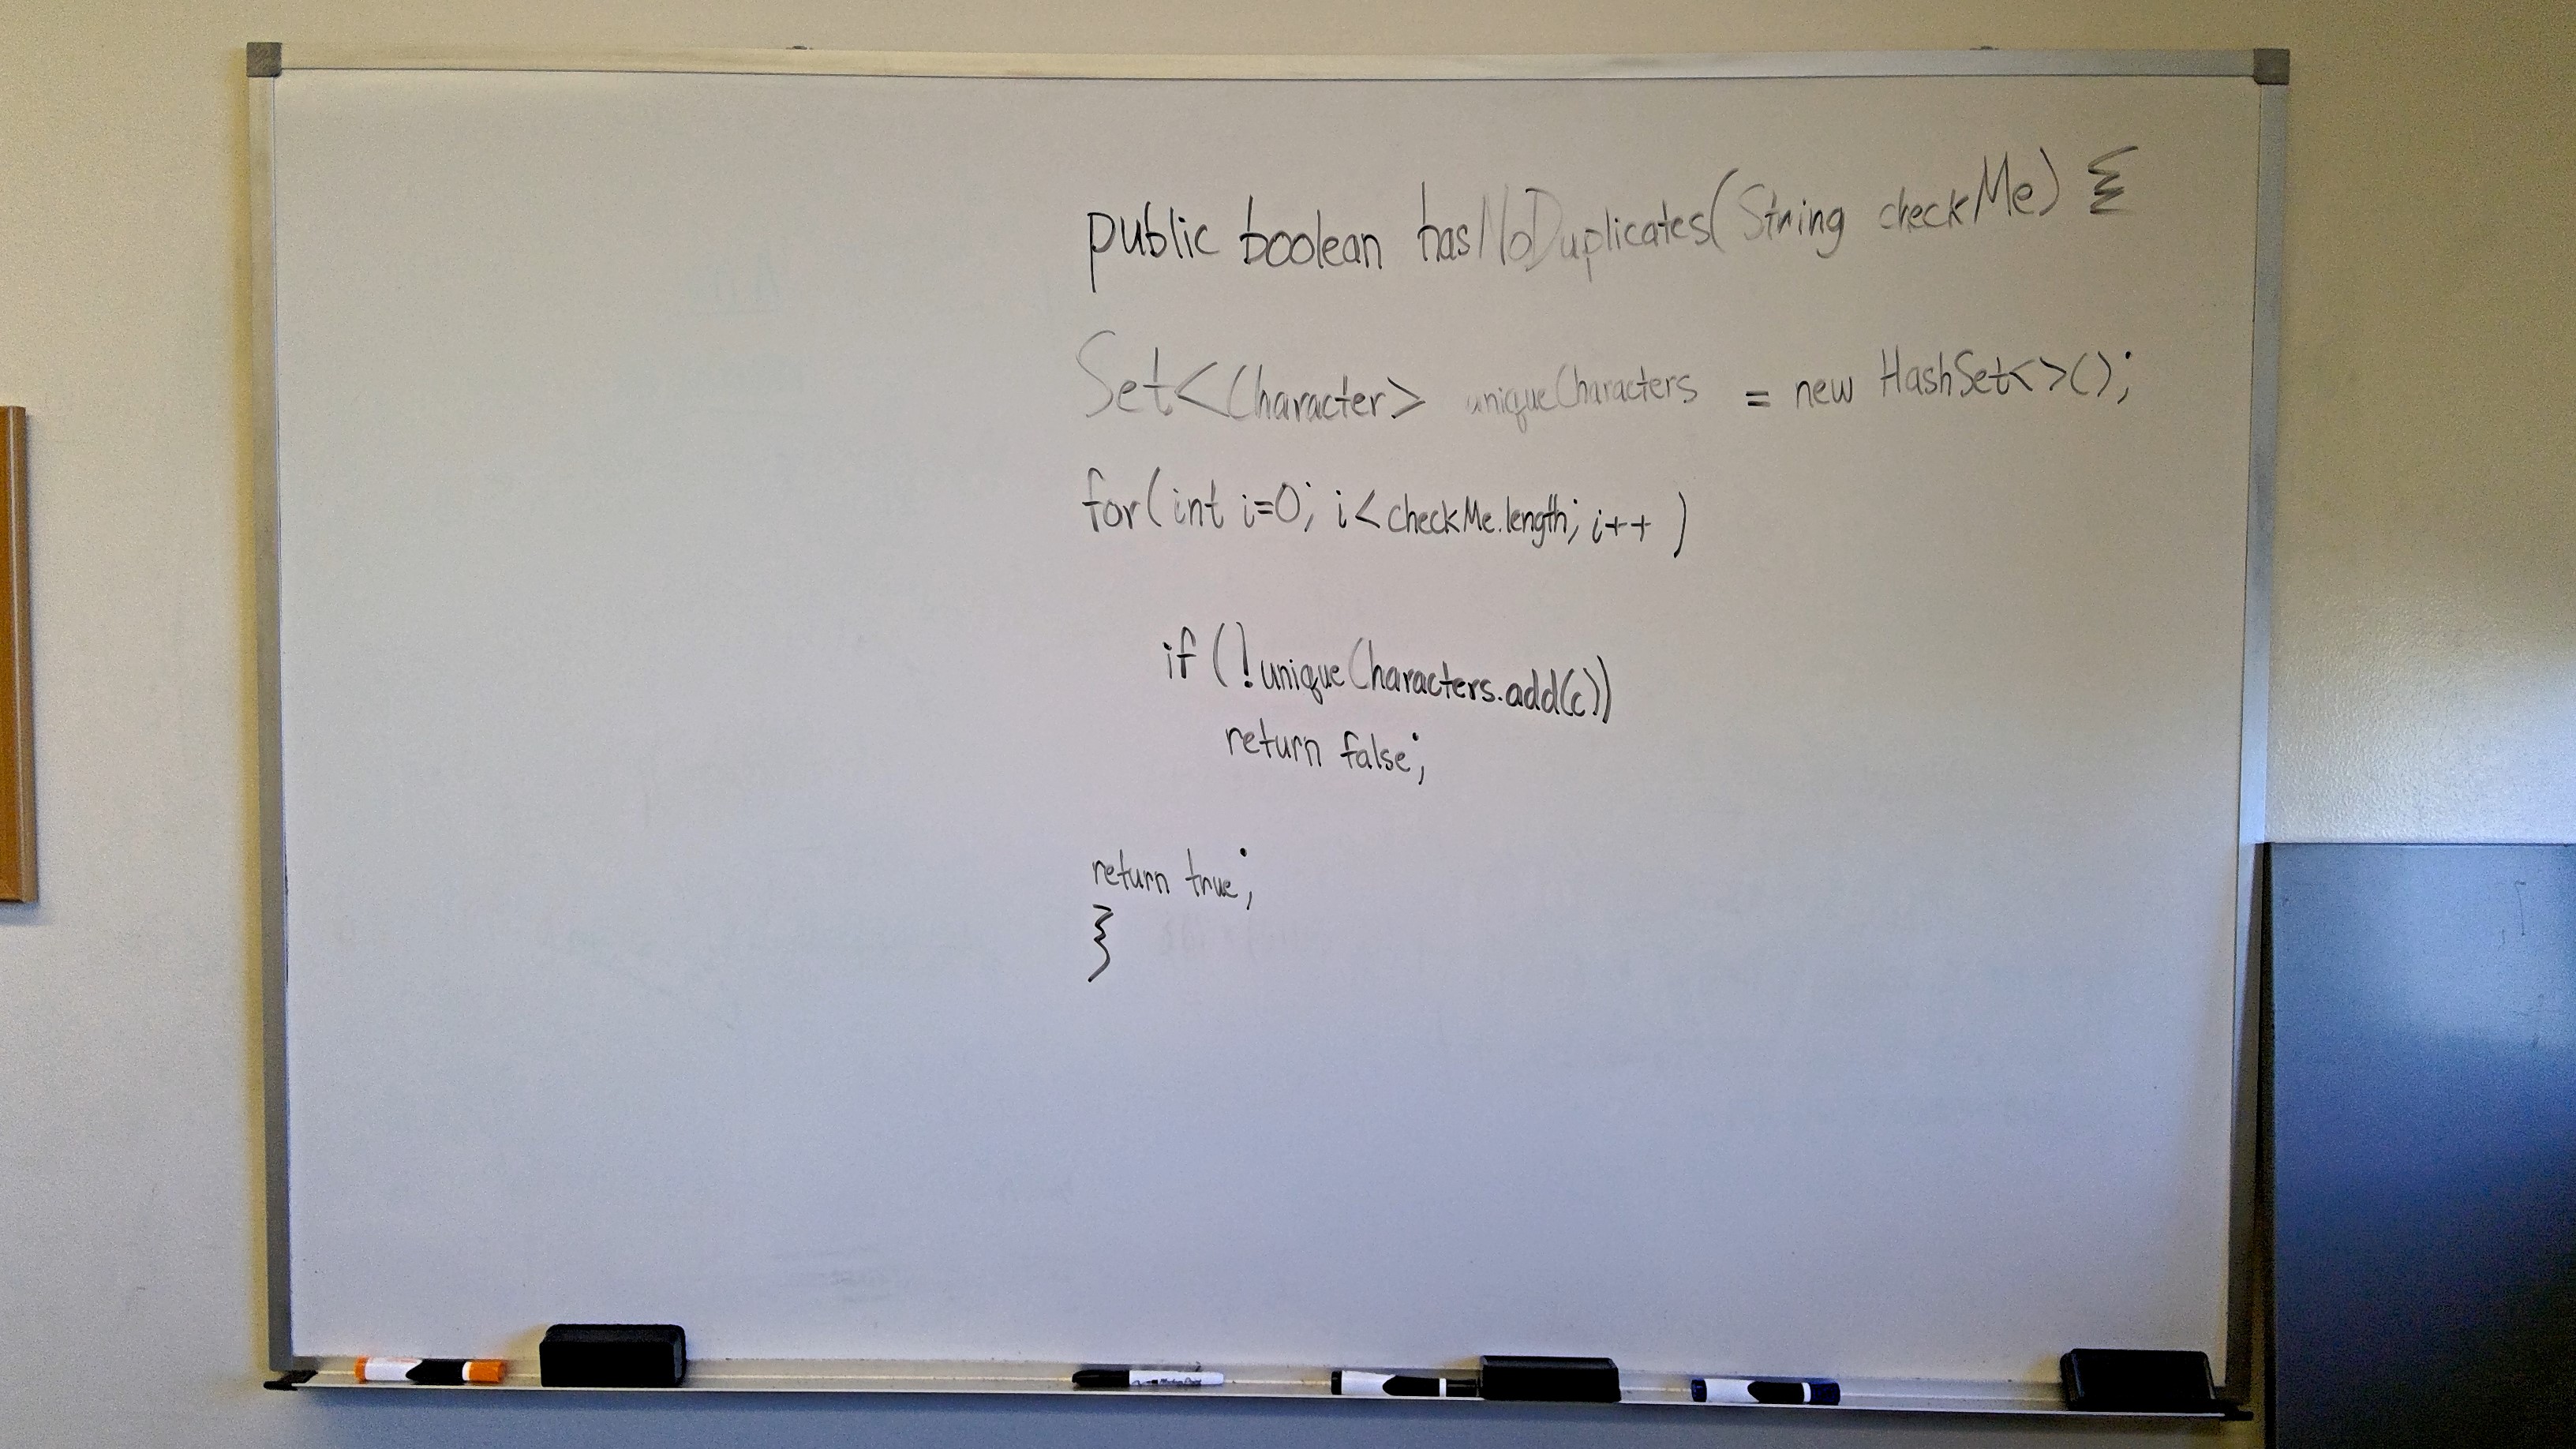 public boolean hasNoDuplicates(String checkMe) {
Set<Character> uniqueCharacters = new HashSet<>();
for(int i=0; i<checkMe.length; i++ )
if (!uniqueCharacters.add(c))
return false;
return true;
}